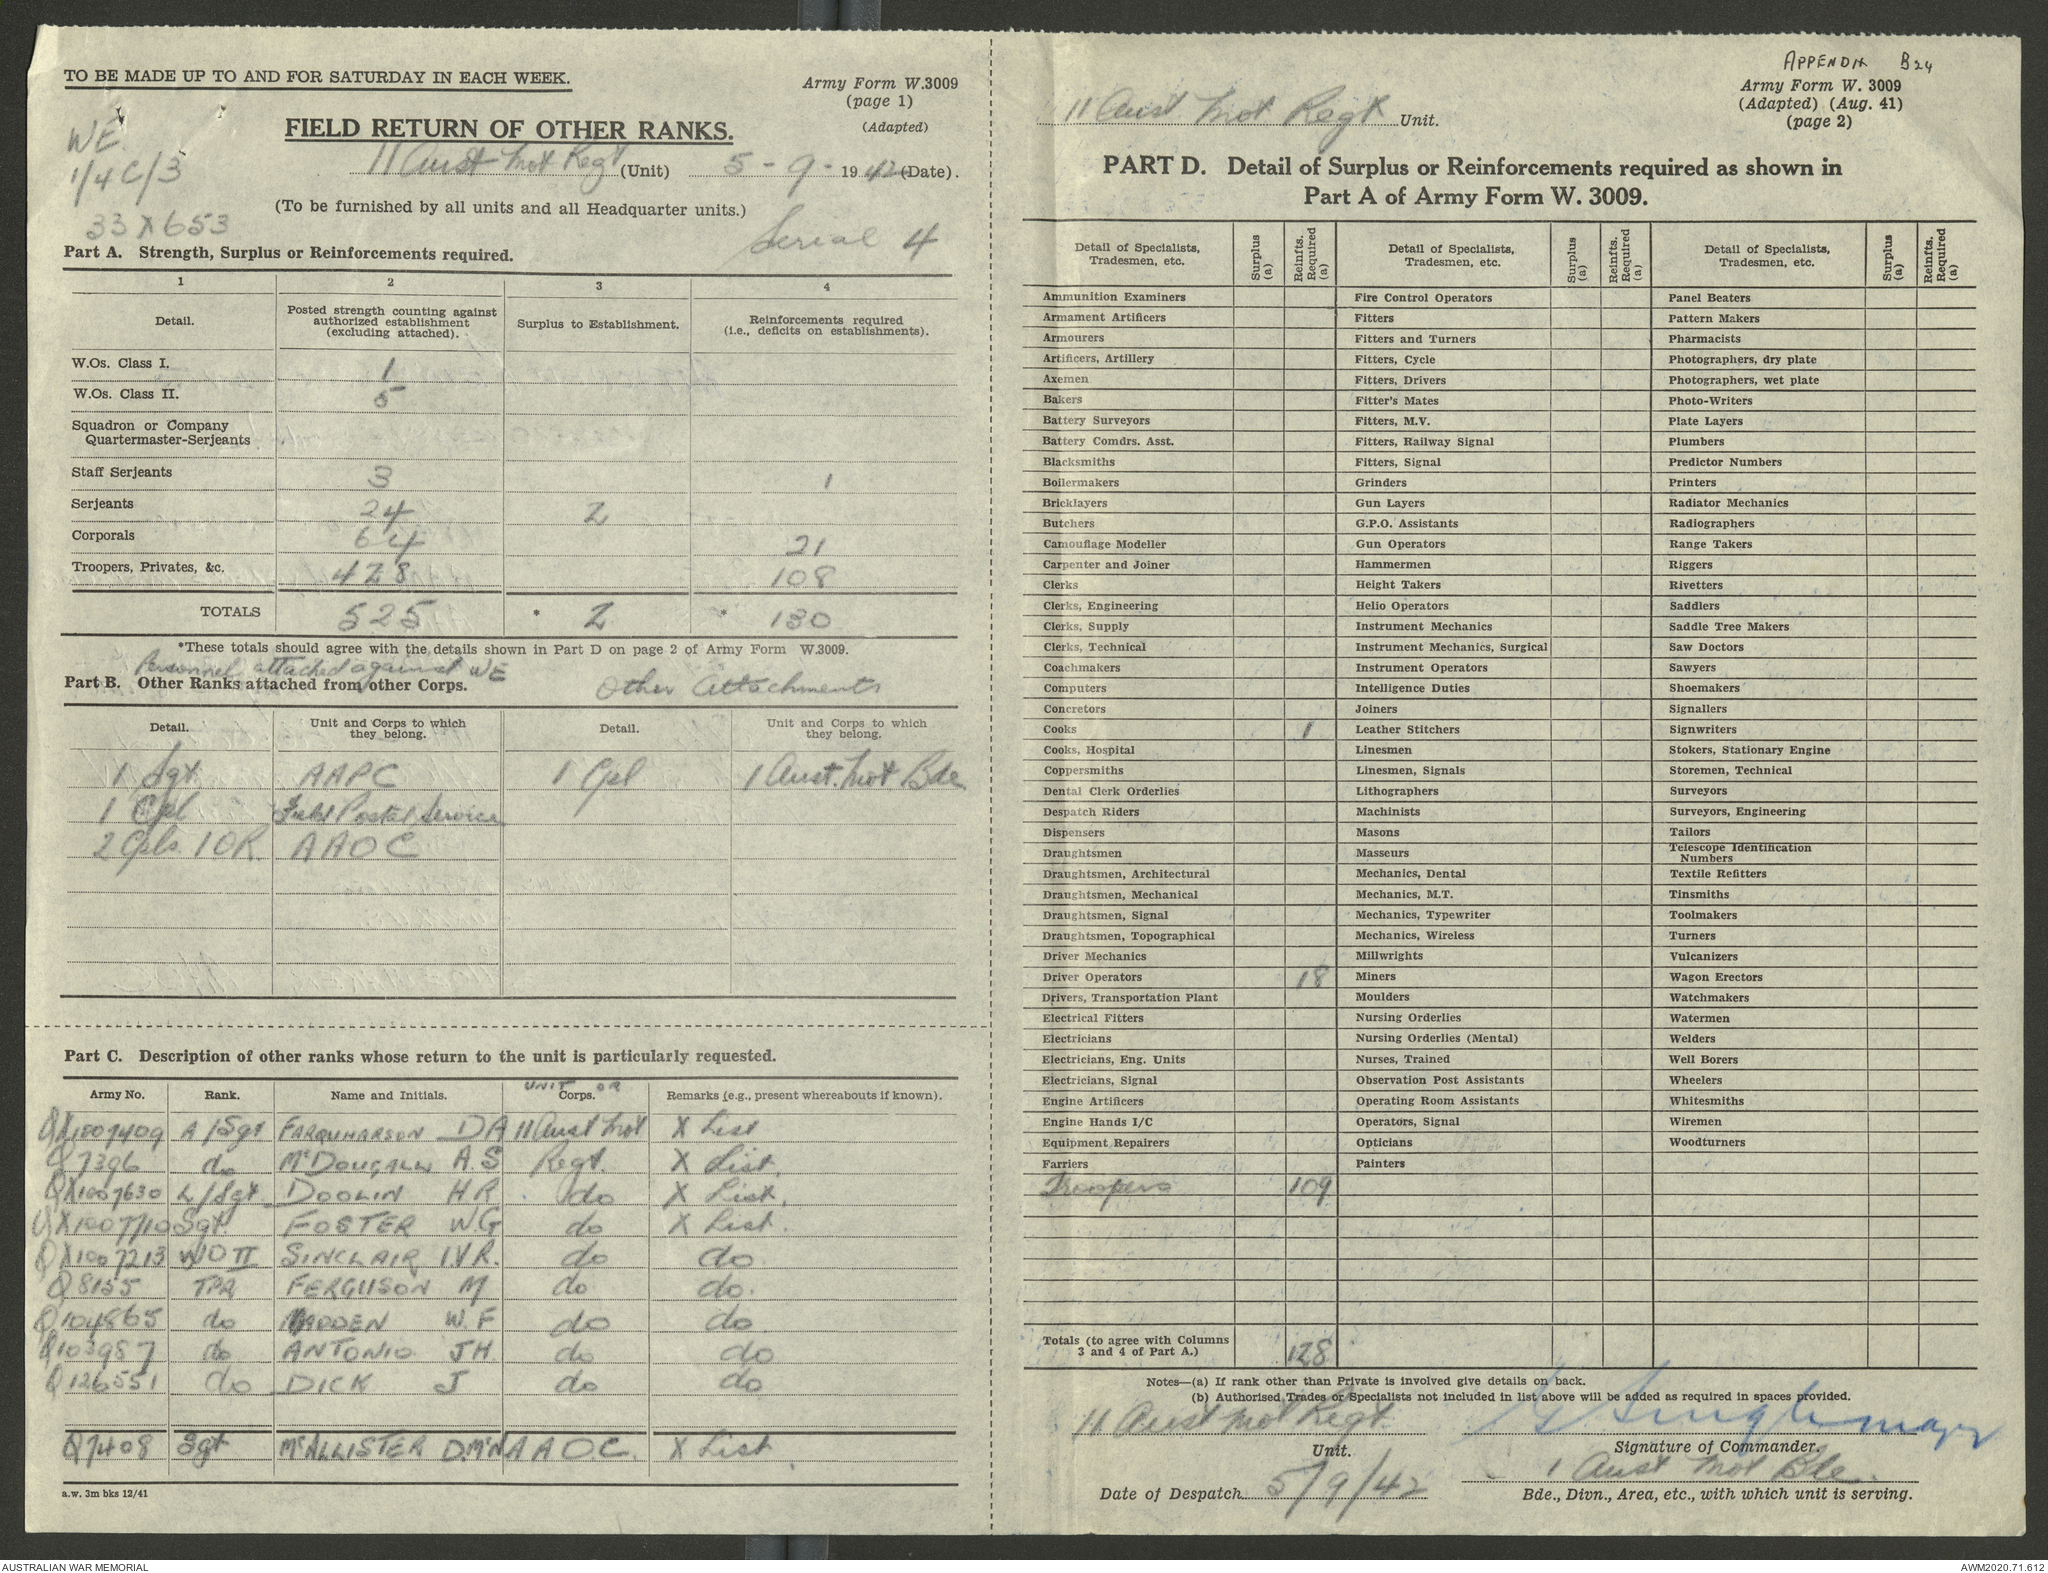 TO BE MADE UP TO AND FOR SATURDAY IN EACH WEEK.
Army Form W.3009
(page 1)
(Adapted)
WE
1/4C/3
33X653
FIELD RETURN OF OTHER RANKS.
11 Aust Mot Regt (Unit) 5 - 9 - 1942 (Date).
(To be furnished by all units and all Headquarter units.)
Serial 4
Part A. Strength, Surplus or Reinforcements required.
1 2 3 4
Detail. Posted strength counting against authorized establishment (excluding attached). Surplus to Establishment. Reinforcements required (i.e., deficits on establishments).
W.Os. Class I. 1
W.Os. Class II. 5
Squadron or Company
Quartermaster-Serjeants
Staff Serjeants 3 1
Serjeants 24 2
Corporals 64 21
Troopers, Privates, &c. 428 108
TOTALS 525 * 2 * 130
*These totals should agree with the details shown in Part D on page 2 of Army Form W.3009.
Personnel attached against WE
Part B. Other Ranks attached from other Corps. Other Attachments
Detail. Unit and Corps to which they belong. Detail. Unit and Corps to which they belong.
1 Sgt AAPC 1 Cpl 1 Aust. Mot Bde
1 Cpl Field Postal Service
2 Cpls. 1 OR AAOC
Part C. Description of other ranks whose return to the unit is particularly requested.
Army No. Rank. Name and Initials. UNIT OR Corps. Remarks (e.g., present whereabouts if known).
QX1007409 A/Sgt FARQUHARSON DA 11 Aust Mot X List
Q7396 do McDOUGALL A.S Regt. X List.
QX1007630 L/Sgt DOOLIN H R do X List.
QX1007710 Sgt. FOSTER W.G do X List.
QX1007213 WO II SINCLAIR I.V.R. do do
Q8155 TPR FERGUSON M do do.
Q104865 do MADDEN W.F do do
Q103987 do ANTONIO JH. do do
Q126551 do DICK J do do
Q7408 Sgt McALLISTER D.McN AAOC. X List
a.w. 3m bks 12/41
APPENDIX B24
Army Form W. 3009
(Adapted) (Aug. 41)
(page 2)
11 Aust Mot Regt Unit.
PART D. Detail of Surplus or Reinforcements required as shown in
Part A of Army Form W. 3009.
Detail of Specialists, Tradesmen, etc. Surplus (a) Reinfts. Required (a) Detail of Specialists, Tradesmen, etc. Surplus (a) Reinfts. Required (a) Detail of Specialists, Tradesmen, etc. Surplus (a) Reinfts. Required (a)
Ammunition Examiners Fire Control Operators Panel Beaters
Armament Artificers Fitters Pattern Makers
Armourers Fitters and Turners Pharmacists
Artificers, Artillery Fitters, Cycle Photographers, dry plate
Axemen Fitters, Drivers Photographers, wet plate
Bakers Fitter's Mates Photo-Writers
Battery Surveyors Fitters, M.V. Plate Layers
Battery Comdrs. Asst. Fitters, Railway Signal Plumbers
Blacksmiths Fitters, Signal Predictor Numbers
Boilermakers Grinders Printers
Bricklayers Gun Layers Radiator Mechanics
Butchers G.P.O. Assistants Radiographers
Camouflage Modeller Gun Operators Range Takers
Carpenter and Joiner Hammermen Riggers
Clerks Height Takers Rivetters
Clerks, Engineering Helio Operators Saddlers
Clerks, Supply Instrument Mechanics Saddle Tree Makers
Clerks, Technical Instrument Mechanics, Surgical Saw Doctors
Coachmakers Instrument Operators Sawyers
Computers Intelligence Duties Shoemakers
Concretors Joiners Signallers
Cooks 1 Leather Stitchers Signwriters
Cooks, Hospital Linesmen Stokers, Stationary Engine
Coppersmiths Linesmen, Signals Storemen, Technical
Dental Clerk Orderlies Lithographers Surveyors
Despatch Riders Machinists Surveyors, Engineering
Dispensers Masons Tailors
Draughtsmen Masseurs Telescope Identification Numbers
Draughtsmen, Architectural Mechanics, Dental Textile Refitters
Draughtsmen, Mechanical Mechanics, M.T. Tinsmiths
Draughtsmen, Signal Mechanics, Typewriter Toolmakers
Draughtsmen, Topographical Mechanics, Wireless Turners
Driver Mechanics Millwrights Vulcanizers
Driver Operators 18 Miners Wagon Erectors
Drivers, Transportation Plant Moulders Watchmakers
Electrical Fitters Nursing Orderlies Watermen
Electricians Nursing Orderlies (Mental) Welders
Electricians, Eng. Units Nurses, Trained Well Borers
Electricians, Signal Observation Post Assistants Wheelers
Engine Artificers Operating Room Assistants Whitesmiths
Engine Hands I/C Operators, Signal Wiremen
Equipment Repairers Opticians Woodturners
Farriers Painters
Troopers 109
Totals (to agree with Columns 3 and 4 of Part A.) 128
Notes—(a) If rank other than Private is involved give details on back.
(b) Authorised Trades or Specialists not included in list above will be added as required in spaces provided.
11 Aust Mot Regt. Major
Unit. Signature of Commander.
1 Aust Mot Bde.
Date of Despatch 5/9/42 Bde., Divn., Area, etc., with which unit is serving.
AUSTRALIAN WAR MEMORIAL AWM2020.71.612